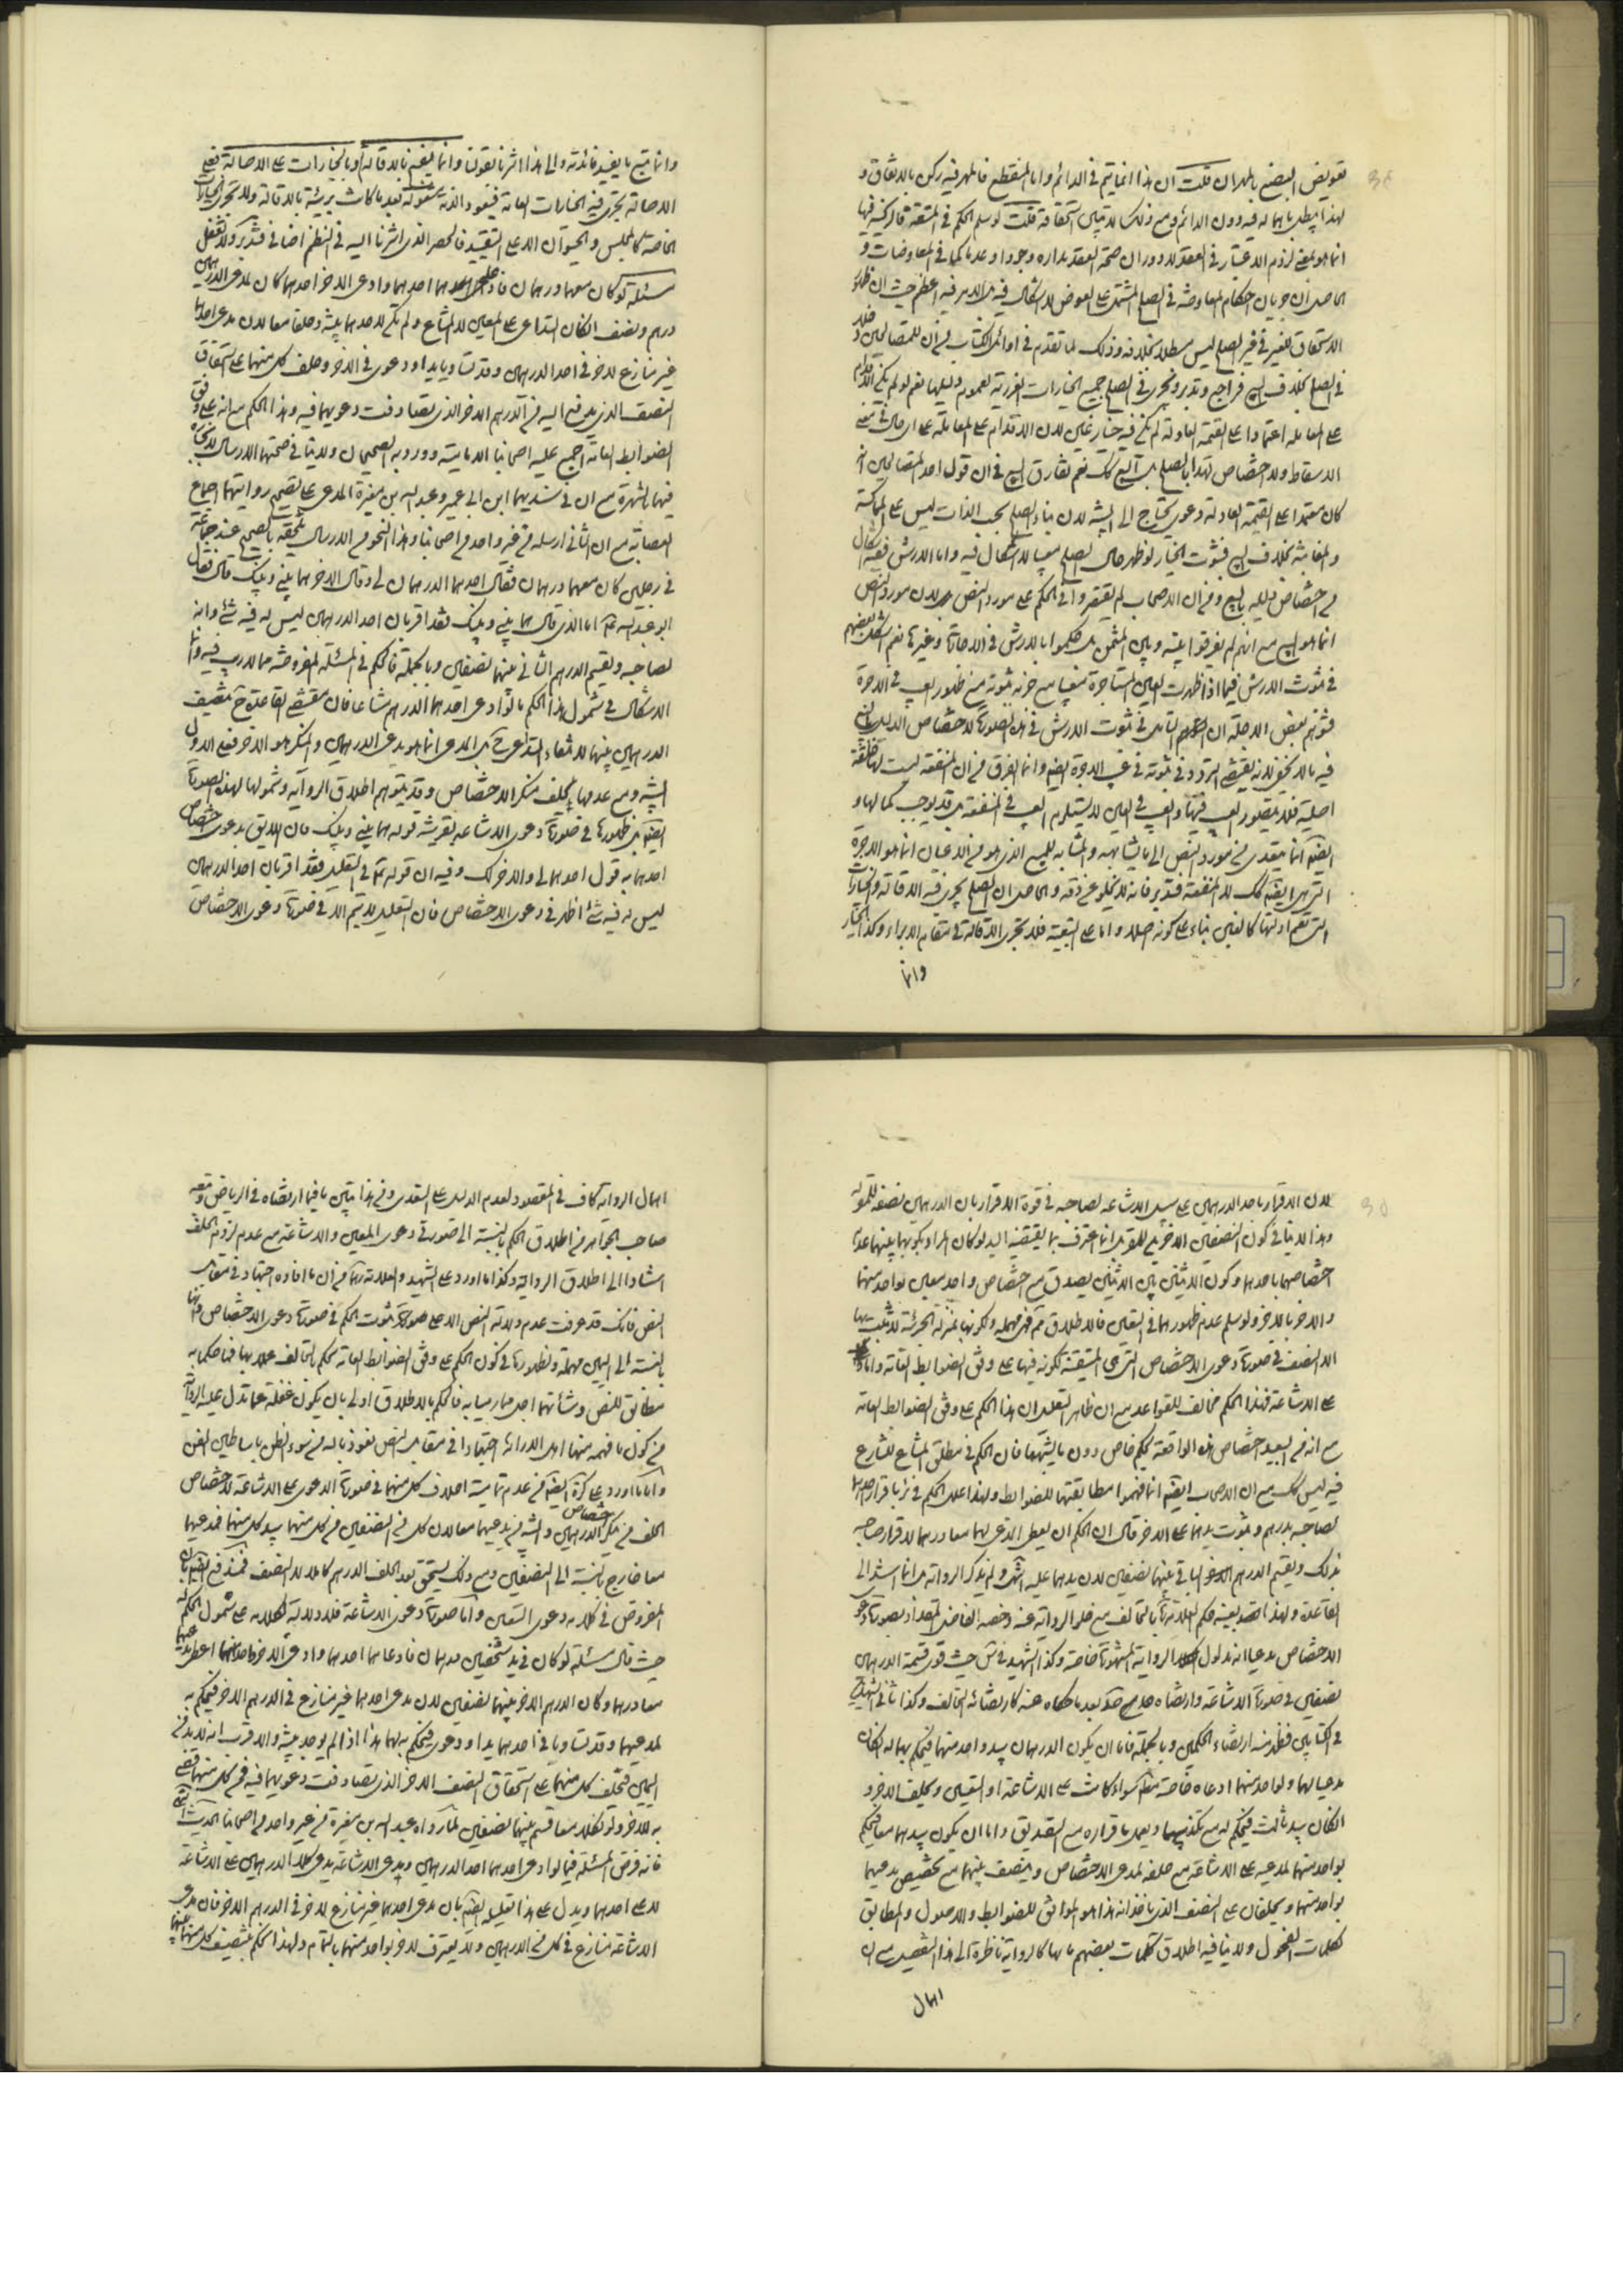 تعويض البضع بالمهر ان قلت ان هذا انما يتم في الدائم واما المنقطع فالمهر فيه ركن بالاتفاق و
لهذا يبطل باهماله فيه دون الدائم ومع ذلك لا يتبين استحقاقه قلت لو سلم الحكم في المتعة فالركنية فيها
انما هو بمعنى لزوم الاعتبار في العقد لا دوران صحة العقد مداره وجودا وعدما كما في المعاوضات و
الحاصل ان جريان احكام المعاوضة في الصلح المشتمل على العوض لا اشكال فيه بل الامر فيه اعظم حيث ان ظهور
الاستحقاق للغير في غير الصلح ليس مبطلا بخلافه وذلك لما تقدم في اوائل الكتاب من ان للمتصالحين
في الصلح بخلاف البيع فراجع وتدبر وتجري في الصلح جميع الخيارات الغررية لعموم دليلها نعم لو لم يكن الاقدام
على المعاملة اعتمادا على القيمة العادلة لم يكن فيه خيار غبن لان الاقدام على المعاملة على اي حال في معنى
الاسقاط ولا اختصاص لهذا بالصلح بل البيع كك نعم يفارق البيع في ان قول احد المتصالحين انه
كان معتمدا على القيمة العادلة دعوى يحتاج الى البينة لان بناء الصلح بحسب الذات ليس على المماكسة
والمغابنة بخلاف البيع فثبوت الخيار لو ظهر حال الصلح معيبا لا اشكال فيه واما الارش ففيه اشكال
من اختصاص دليله بالبيع ومن ان الاصحاب لم يقتصروا في الحكم على مورد النص لان مورد النص
انما هو البيع مع انهم لم يفرقوا بينه وبين الثمن بل حكموا بالارش في الاجارة وغيرها نعم استشكل بعضهم
في ثبوت الارش فيما اذا ظهرت العين المستأجرة معيبا مع جزمه بثبوته مع ظهور العيب في الاجرة
فتوهم بعض الاجلة ان التأمل في ثبوت الارش في هذه الصورة لاختصاص الدليل بالبيع
فيه ما لا يخفى لانه يقتضي التردد في ثبوته في عيب الاجرة ايضا وانما الفرق من ان المنفعة ليست لها خلقة
اصلية فلا يتصور العيب فيها والعيب في العين لا يستلزم العيب في المنفعة بل قد يوجب كمالها و
ايضا انما يتعدى من مورد النص الى ما يشابهه والمشابه للمبيع الذي هو من الاعيان انما هو الاجرة
التي هي ايضا كك لا المنفعة فتدبر فانه لا يخلو عن دقة والحاصل ان الصلح يجري فيه الاقالة والخيارات
التي تعم ادلتها كالغبن بناء على كونه اصلا واما على التبعية فلا تجري الاقالة في مقام الابراء وكذا الخيار
وانما
وانما يتبع ما يفيد فائدته والى هذا اشرنا بقولنا وانما يفسخ بالاقالة او بالخيارات على الاصالة فعلى
الاصالة يجري فيه الخيارات العامة فيعود الذمة مشغولة بعد ما كانت بريئة بالاقالة ولا تجري الخيارات
الخاصة كالمجلس والحيوان الا على التقييد فالحصر الذي اشرنا اليه في النظم اضافي فتدبر ولا تغفل
مسئلة لو كان معهما درهمان فادعى احدهما وادعى الاخر احدهما كان لمدعي الدرهمين
درهم ونصف ان كان التداعي على المعين لا المشاع ولم يكن لاحدهما بينة وحلفا معا لان مدعي احدهما
غير منازع للاخر في احد الدرهمين وقد تساويا يدا ودعوى في الاخر وحلف كل منهما على استحقاق
النصف الذي يدعي اليه من الدرهم الاخر الذي تصادفت دعويهما فيه وهذا الحكم مع انه على وفق
الضوابط العامة اجمع عليه اصحابنا الامامية وورد به الصحيحان ولا ينافي صحتهما الارسال لانجباره
فيهما بالشهرة مع ان في سنديهما ابن ابي عمير وعبد الله بن مغيرة المدعى على تصحيح روايتهما اجماع
العصابة مع ان الثاني ارسله عن غير واحد من اصحابنا وهذا النحو من الارسال يلحقه بالصحيح عند جماعة
في رجلين كان معهما درهمان فقال احدهما الدرهمان لي وقال الاخر هما بيني وبينك قال فقال
ابو عبد الله ع اما الذي قال هما بيني وبينك فقد اقر بان احد الدرهمين ليس له فيه شئ وانه
لصاحبه ويقسم الدرهم الثاني بينهما نصفين وبالجملة فالحكم في المسئلة المفروضة مما لا ريب فيه وانما
الاشكال في شمول هذا الحكم ما لو ادعى احدهما الدرهم مشاعا فان مقتضى القاعدة ح تنصيف
الدرهمين بينهما لانتفاء التداعي ح بل المدعي انما هو مدعي الدرهمين والمنكر هو الاخر فعلى الاول
البينة ومع عدمها يحلف منكر الاختصاص وقد يتوهم اطلاق الرواية وشمولها لهذه الصورة
ايضا بل ظهورها في صورة دعوى الاشاعة بقرينة قوله هما بيني وبينك فان اللايق بدعوى اختصاص
احدهما به قول احدهما لي والاخر لك وفيه ان قوله ع في التعليل فقد اقر بان احد الدرهمين
ليس له فيه شئ اظهر في دعوى الاختصاص فان التعليل لا يتم الا في صورة دعوى الاختصاص
لان الاقرار باحد الدرهمين على سبيل الاشاعة لصاحبه في قوة الاقرار بان الدرهمين نصفه للمقر له
وهذا لا ينافي كون النصفين الاخرين للمقر بل انما اعترف بما يقتضيه اليد لو كان المراد بكونهما بينهما عدم
اختصاصهما باحدهما وكون الاثنين بين الاثنين يصدق مع اختصاص واحد معين بواحد منهما
والاخر بالاخر ولو سلم عدم ظهورها في التعيين فالاطلاق ثمة فهي مهملة ولكونها بمنزلة الجزئية لا يثبت بها
الا النصف في صورة دعوى الاختصاص التي هي المتيقنة لكونه فيها على وفق الضوابط العامة واما
على الاشاعة فهذا الحكم مخالف للقواعد مع ان ظاهر التعليل ان هذا الحكم على وفق الضوابط العامة
مع انه من البعيد اختصاص هذه الواقعة بحكم خاص دون ما يشبهها فان الحكم في مطلق المشاع للشارع
فيه ليس كك مع ان الاصحاب ايضا انما فهموا مطابقتها للضوابط ولهذا علل الحكم في باقرار احدهما
لصاحبه بدرهم وثبوت يدهما على الاخر قال ان الحكم ان يعطى الذي لهما معا درهما لاقرار صاحبه
بذلك ويقسم الدرهم الباقي بينهما نصفين لان يدهما عليه انتهى ولم يذكر الرواية بل انما استند الى
القاعدة ولهذا بعينه حكم العلامة ره بالتحالف مع خلو الرواية عنه وخصه الفاضل المقداد بصورة دعوى
الاختصاص مدعيا انه مدلول الرواية المشهورة خاصة وكذا الشهيد في س حيث قوى قسمة الدرهمين
نصفين في صورة الاشاعة وارتضاه بعد ما حكاه عنه كارتضائه التحالف وكذا ثاني الشهيدين
في الكتابين فظهر منه ارتضاء الحكمين وبالجملة فاما ان يكون الدرهمان بيد واحد منهما فيحكم بهما له ان كان
مدعيا لهما ولواحد منهما ادعاه خاصة سواء كانت على الاشاعة او التعيين ويحلف الاخر و
ان كان بيد ثالث فيحكم له مع تكذيبهما ويعمل باقراره مع التصديق واما ان يكون بيدهما معا فيحكم
بواحد منهما لمدعيه على الاشاعة مع حلفه لمدعي الاختصاص وينصف بينهما مع تخصيص مدعيهما
بواحد منهما ويحلفان على النصف الذي ياخذانه هذا هو الموافق للضوابط والاصول والمطابق
لكلمات الفحول ولا ينافيه اطلاق كلمات بعضهم بل هما كالرواية ناظرة الى هذا التفصيل مع ان
اهمال
اهمال الرواية كاف في المقصود لعدم الدليل على التعدي ومن هذا تبين ما فيما ارتضاه في الرياض وتبعه
صاحب الجواهر من اطلاق الحكم بالنسبة الى صورتي دعوى المعين والاشاعة مع عدم لزوم الحلف
استنادا الى اطلاق الرواية وكذا ما اورد على الشهيد والعلامة ره من ان ما افاده اجتهاد في مقابل
النص فانك قد عرفت عدم دلالة النص الا على ثبوت الحكم في صورة دعوى الاختصاص وانها
بالنسبة الى اليمين مهملة ولظهورها في كون الحكم على وفق الضوابط العامة يحكم بالتحالف عملا بها فما حكما به
مطابق للنص وشأنهما اجل مما رميا به فالحكم بالاطلاق اولى بان يكون غفلة عما تدل عليه الرواية
من كون ما فهمه منها اهل الدراية اجتهادا في مقابل النص نعوذ بالله من سوء الظن باساطين الفن
واما ما اورد على كرة ايضا من عدم تمامية احلاف كل منهما في صورة الدعوى على الاشاعة لاختصاص
الحلف من منكر اختصاص الدرهمين والبينة من مدعيهما معا لان كل من النصفين من كل منهما بيد كل منهما فمدعيهما
معا خارج بالنسبة الى النصفين ومع ذلك يستحق بعد الحلف الدرهم كاملا لا النصف فمندفع ايضا بان
المفروض في كلامه دعوى التعيين واما صورة دعوى الاشاعة فلا دلالة لكلامه على شمول الحكم له
حيث قال مسئلة لو كان في يد شخصين درهمان فادعاهما احدهما وادعى الاخر احدهما اعطى مدعيهما
معا درهما وكان الدرهم الاخر بينهما نصفين لان مدعي احدهما غير منازع في الدرهم الاخر فيحكم به
لمدعيهما وقد تساويا في احدهما يدا ودعوى فيحكم به لهما هذا اذا لم يوجد بينة والاقرب انه لا بد من
اليمين فيحلف كل منهما على استحقاق النصف الاخر الذي تصادفت دعويهما فيه فمن نكل منهما قضي
به للاخر ولو نكلا معا قسم بينهما نصفين لما رواه عبد الله بن مغيرة عن غير واحد من اصحابنا الحديث انتهى
فانه فرض المسئلة فيما لو ادعى احدهما احد الدرهمين ومدعي الاشاعة يدعي كلا الدرهمين على الاشاعة
لا على احدهما ويدل على هذا تعليله ايضا بان مدعي احدهما غير منازع للاخر في الدرهم الاخر فان مدعي
الاشاعة منازع في كل من الدرهمين ولا يعترف للاخر بواحد منهما بالتمام ولهذا نحكم بتنصيف كل منهما بينهما